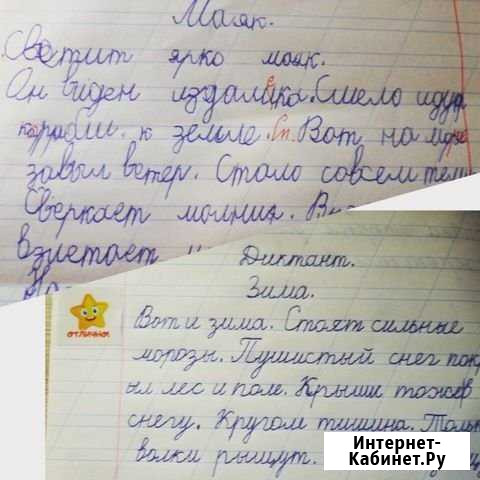 Маяк.
Светит ярко маяк.
Он виден издалека. Смело идут
корабли к земле. Сп. Вот на море
завыл ветер. Стало совсем
Сверкает молния.
взлетает
Диктант.
Зима.
отлично
Вот и зима. Стоят сильные
морозы. Пушистый снег пок
ыл лес и поле. Крыши тоже в
снегу. Кругом тишина. Толь
волки рыщут.
Интернет-
Кабинет.Ру